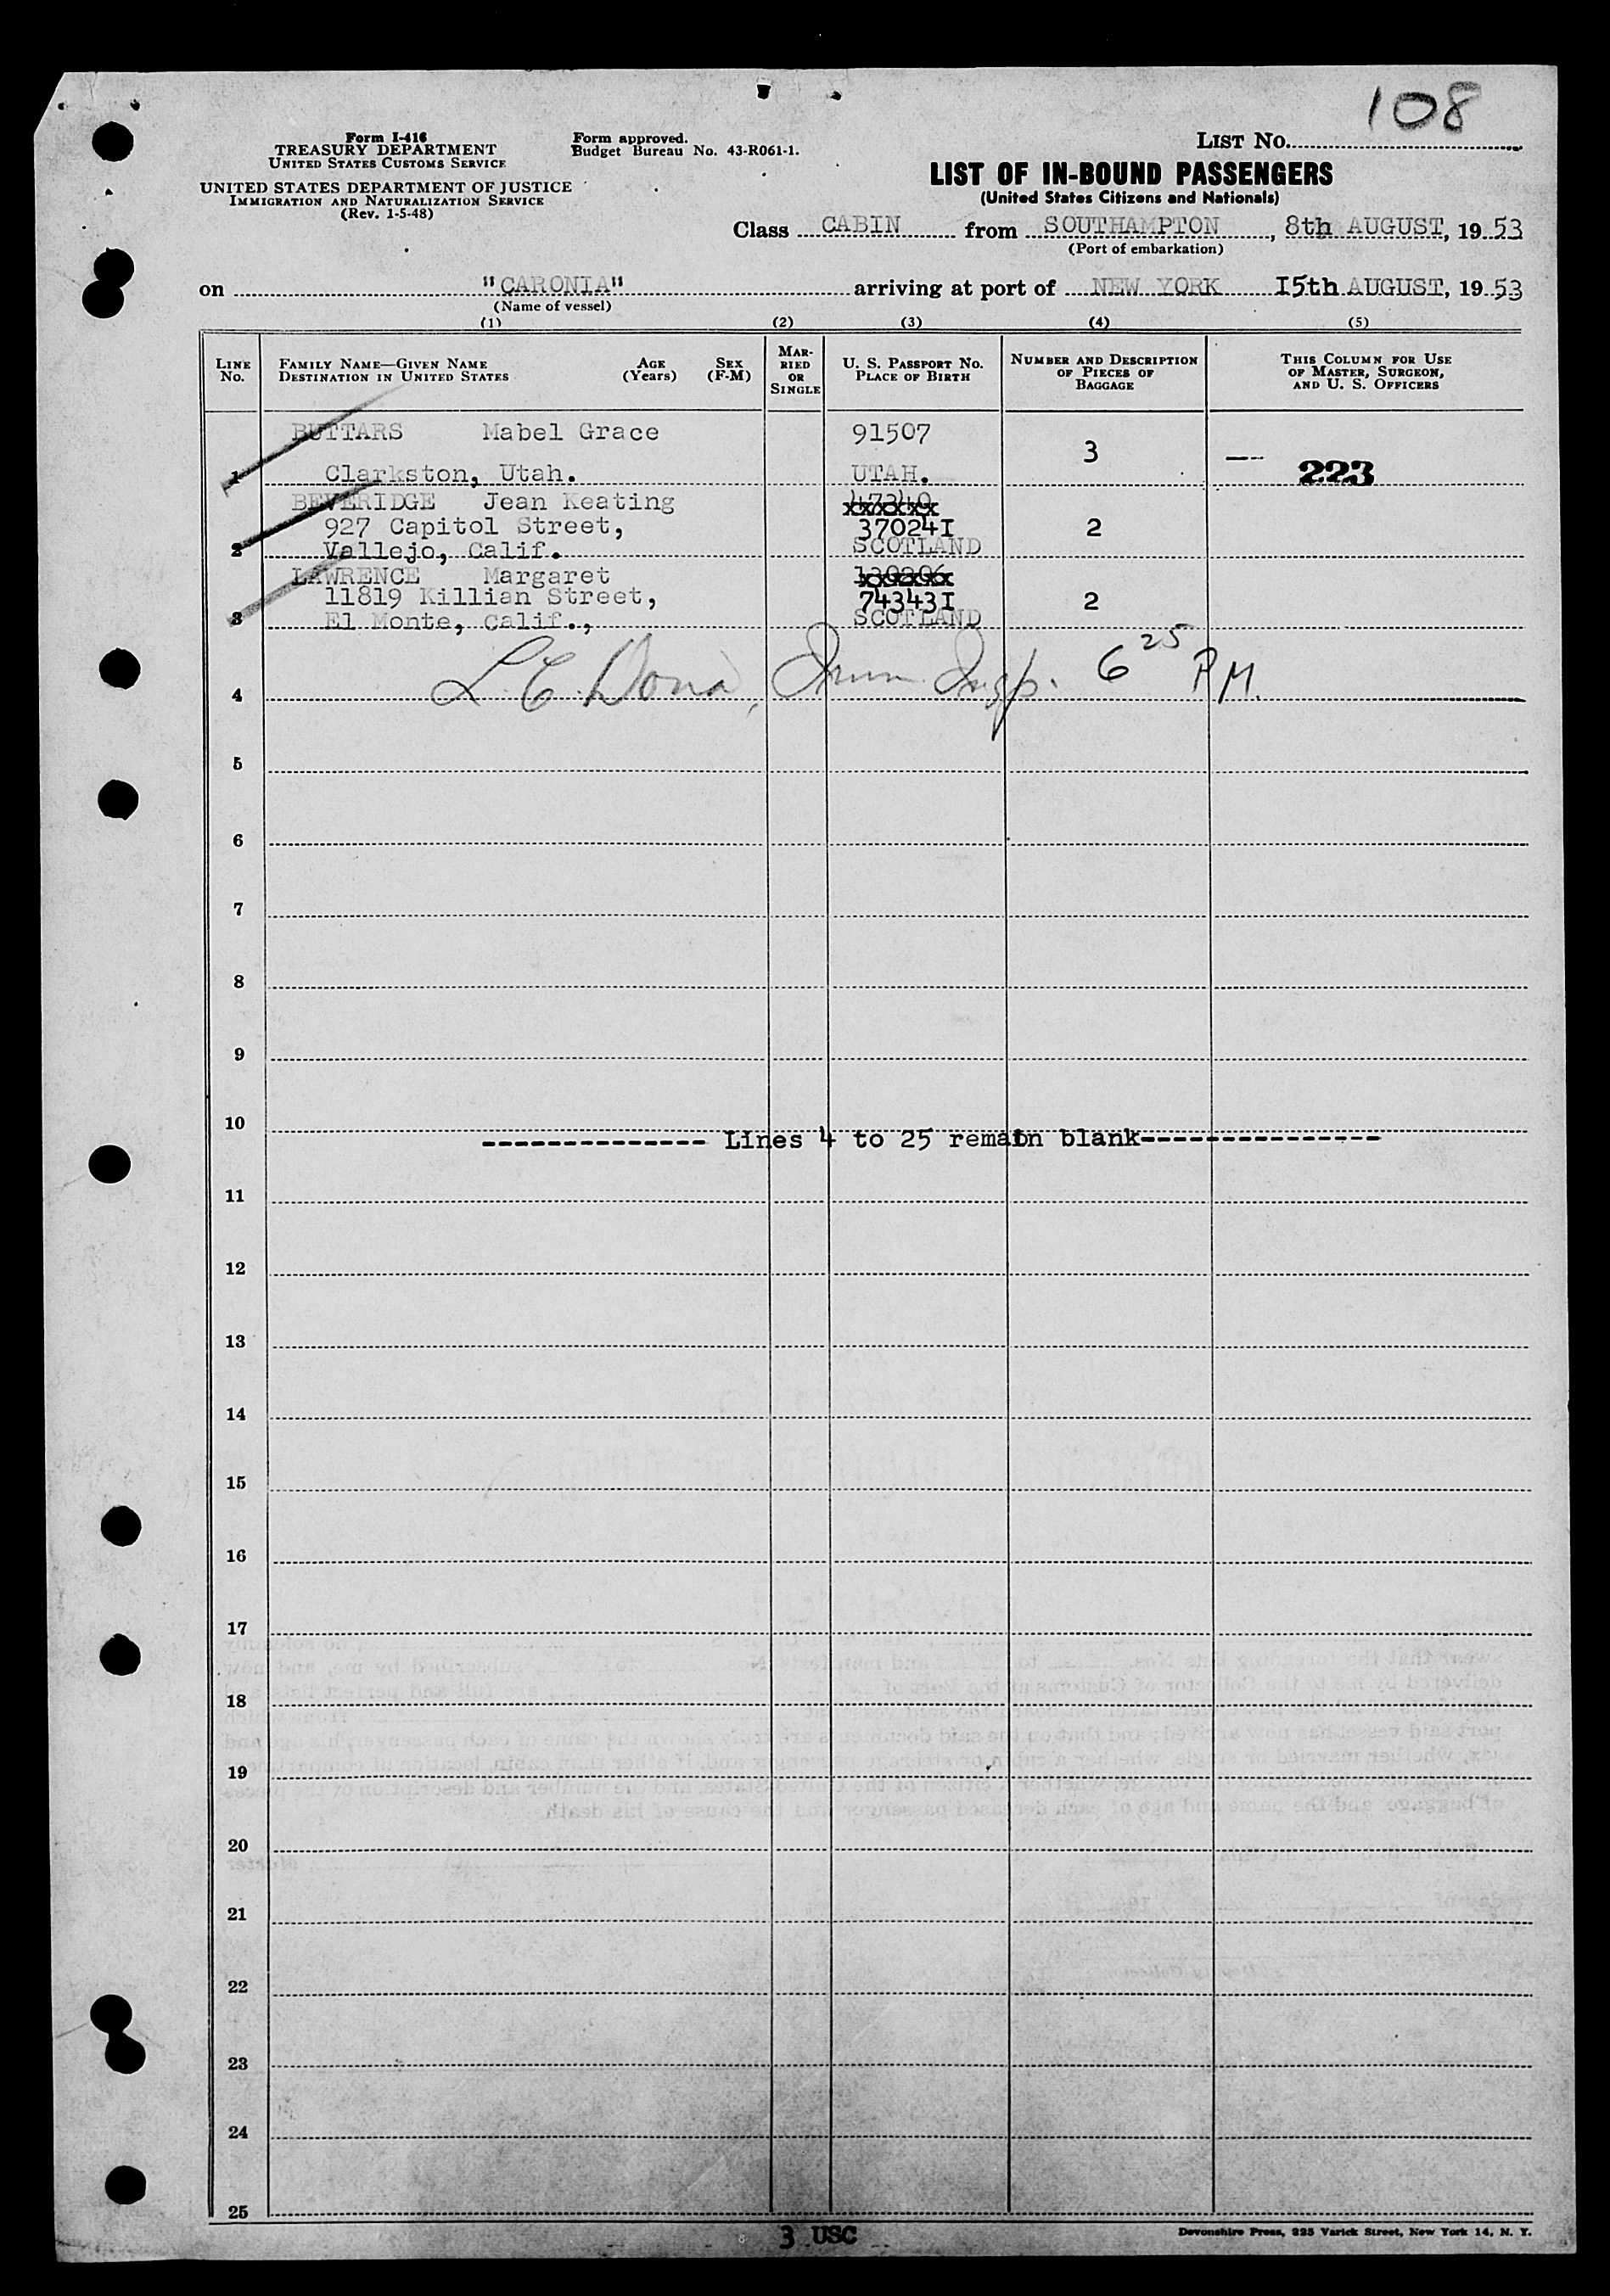 108
Form I-416
TREASURY DEPARTMENT
UNITED STATES CUSTOMS SERVICE
UNITED STATES DEPARTMENT OF JUSTICE
IMMIGRATION AND NATURALIZATION SERVICE
(Rev. 1-5-48)
Form approved.
Budget Bureau No. 43-R061-1.
LIST No.
LIST OF IN-BOUND PASSENGERS
(United States Citizens and Nationals)
Class CABIN from SOUTHAMPTON, 8th AUGUST, 1953
(Port of embarkation)
on "CARONIA" arriving at port of NEW YORK 15th AUGUST, 1953
(Name of vessel)
(1) (2) (3) (4) (5)
LINE No. FAMILY NAME—GIVEN NAME DESTINATION IN UNITED STATES AGE (Years) SEX (F-M) MARRIED OR SINGLE U. S. PASSPORT No. PLACE OF BIRTH NUMBER AND DESCRIPTION OF PIECES OF BAGGAGE THIS COLUMN FOR USE OF MASTER, SURGEON, AND U. S. OFFICERS
BUTTARS Mabel Grace 91507
3
1 Clarkston, Utah. UTAH. — 223
BEVERIDGE Jean Keating
927 Capitol Street, 370241 2
2 Vallejo, Calif. SCOTLAND
LAWRENCE Margaret
11819 Killian Street, 743431 2
3 El Monte, Calif., SCOTLAND
4 L. E. Dona, Imm. Insp. 6 25 P.M.
5
6
7
8
9
10
-------------- Lines 4 to 25 remain blank---------------
11
12
13
14
15
16
17
18
19
20
21
22
23
24
25
3 USC
Devonshire Press, 225 Varick Street, New York 14, N. Y.